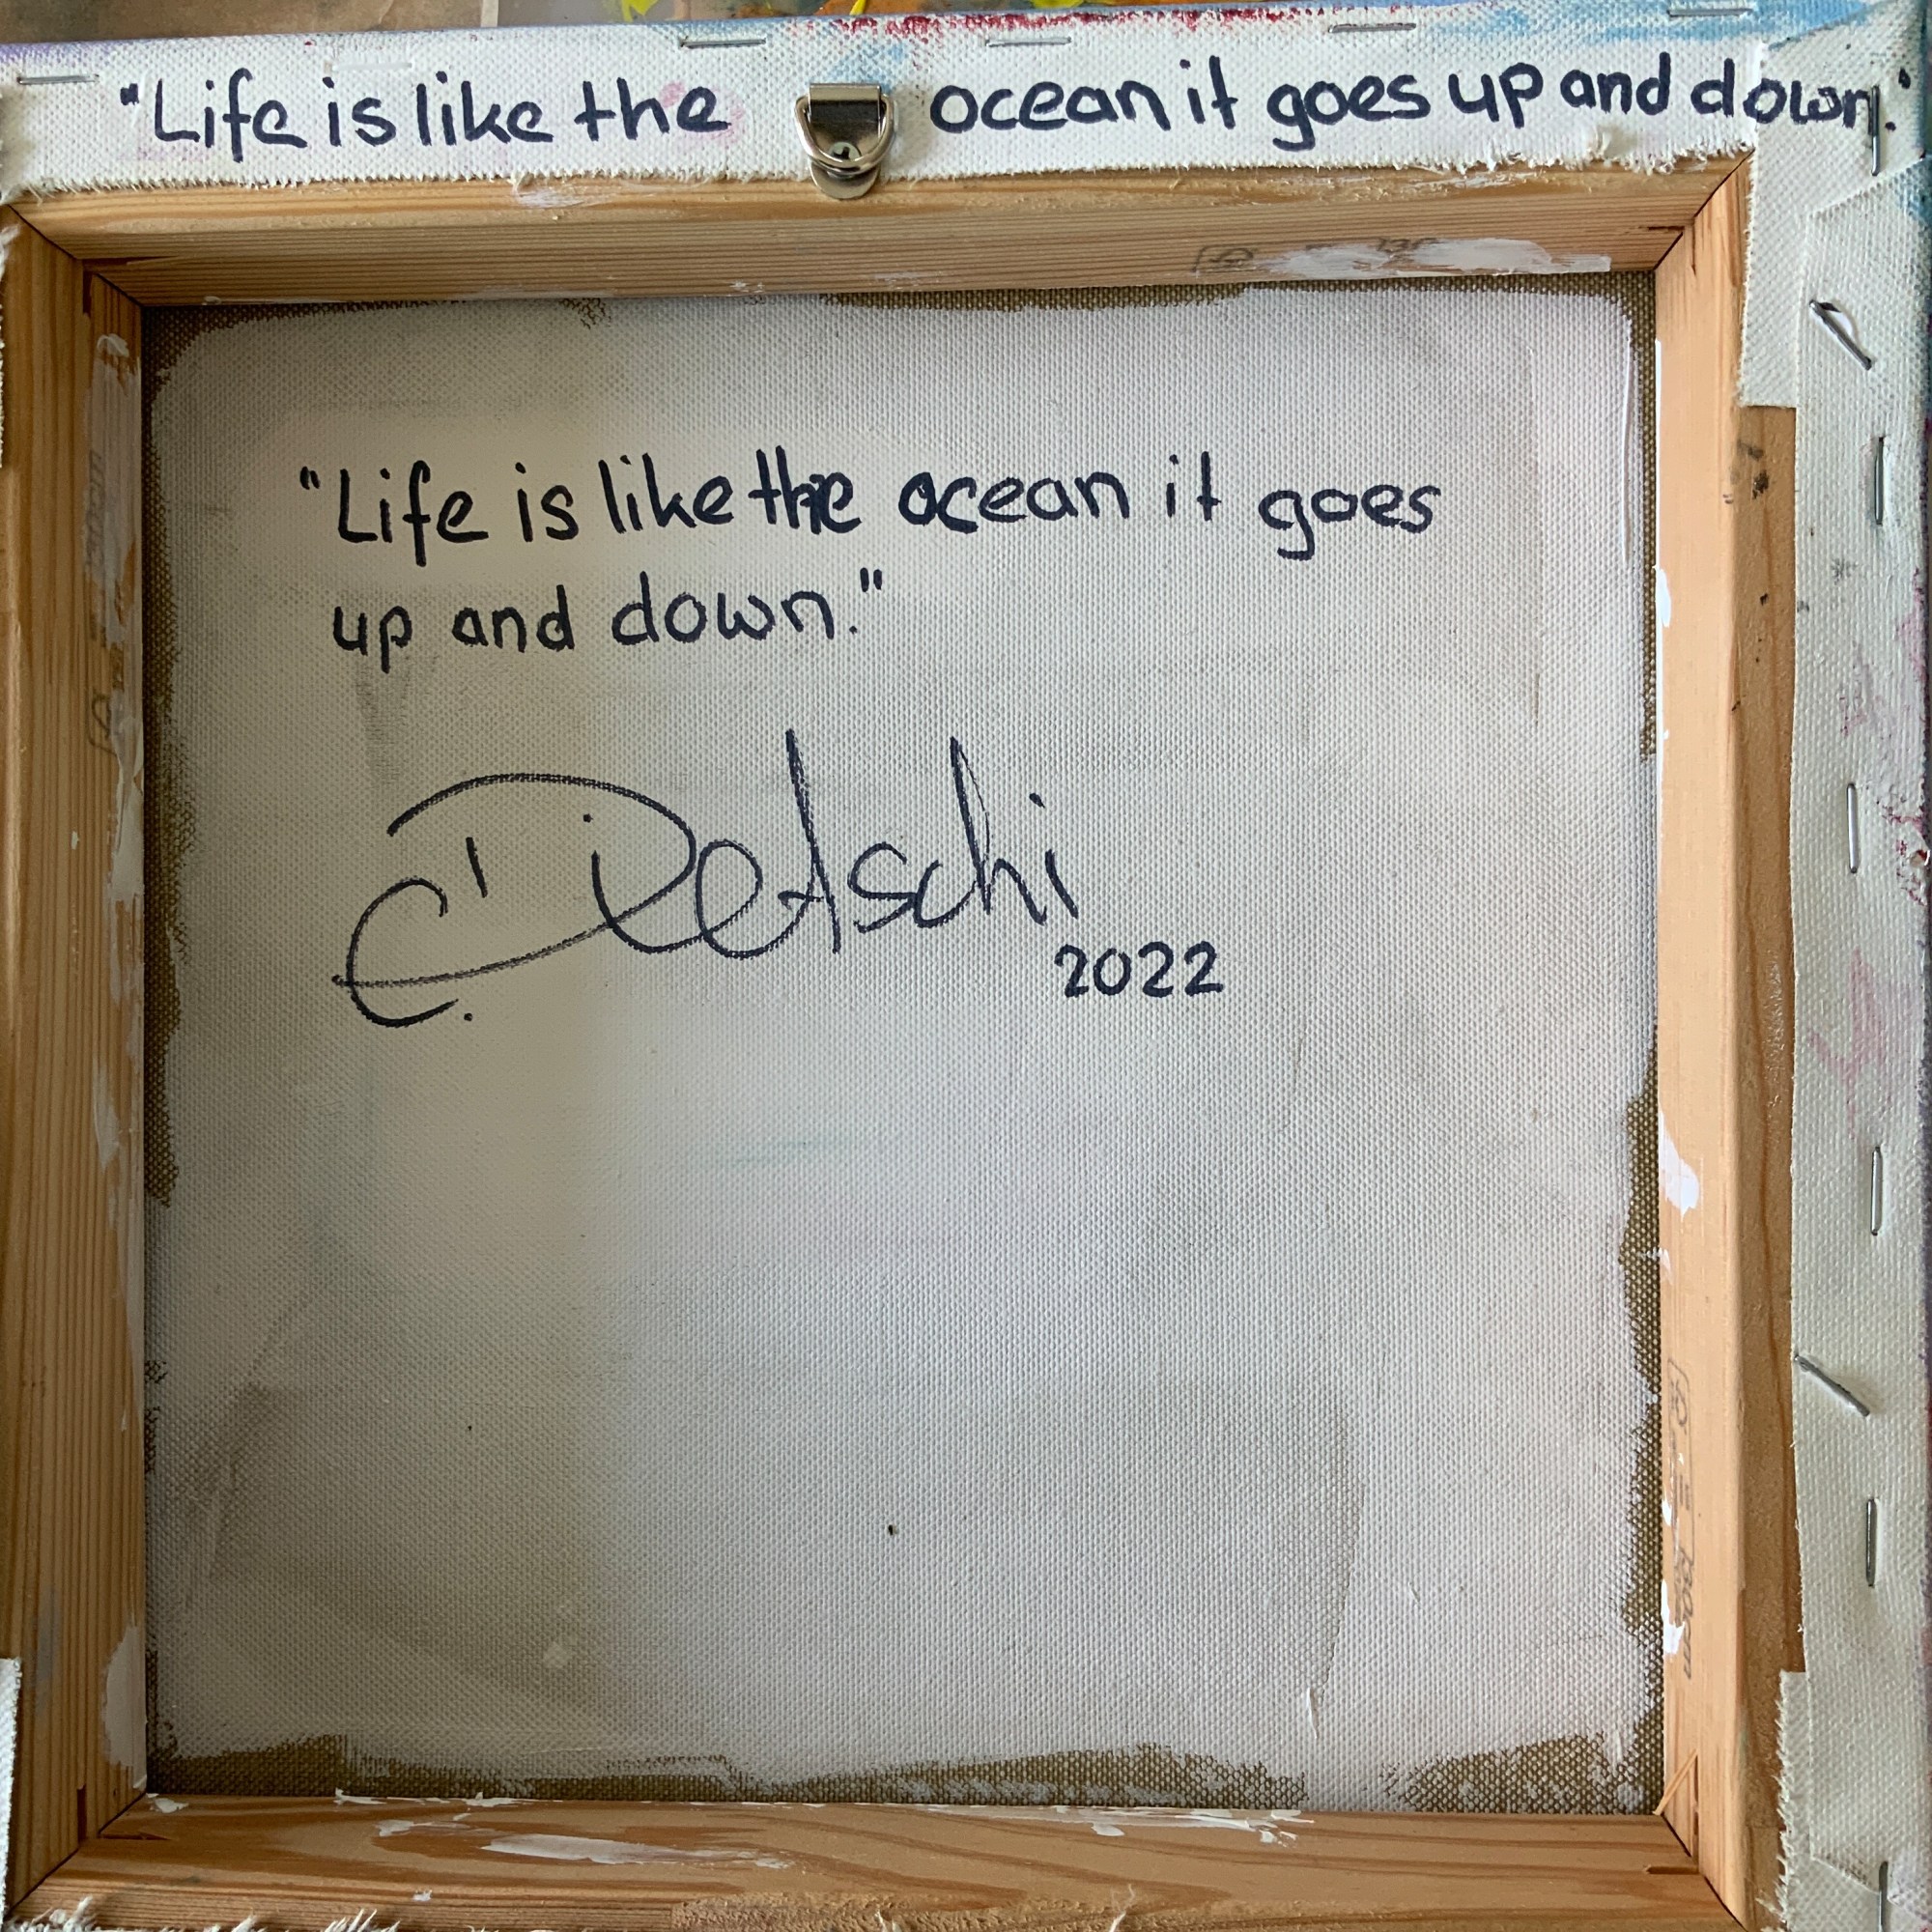 "Life is like the ocean it goes up and down."
"Life is like the ocean it goes
up and down."
C. Detschi
2022